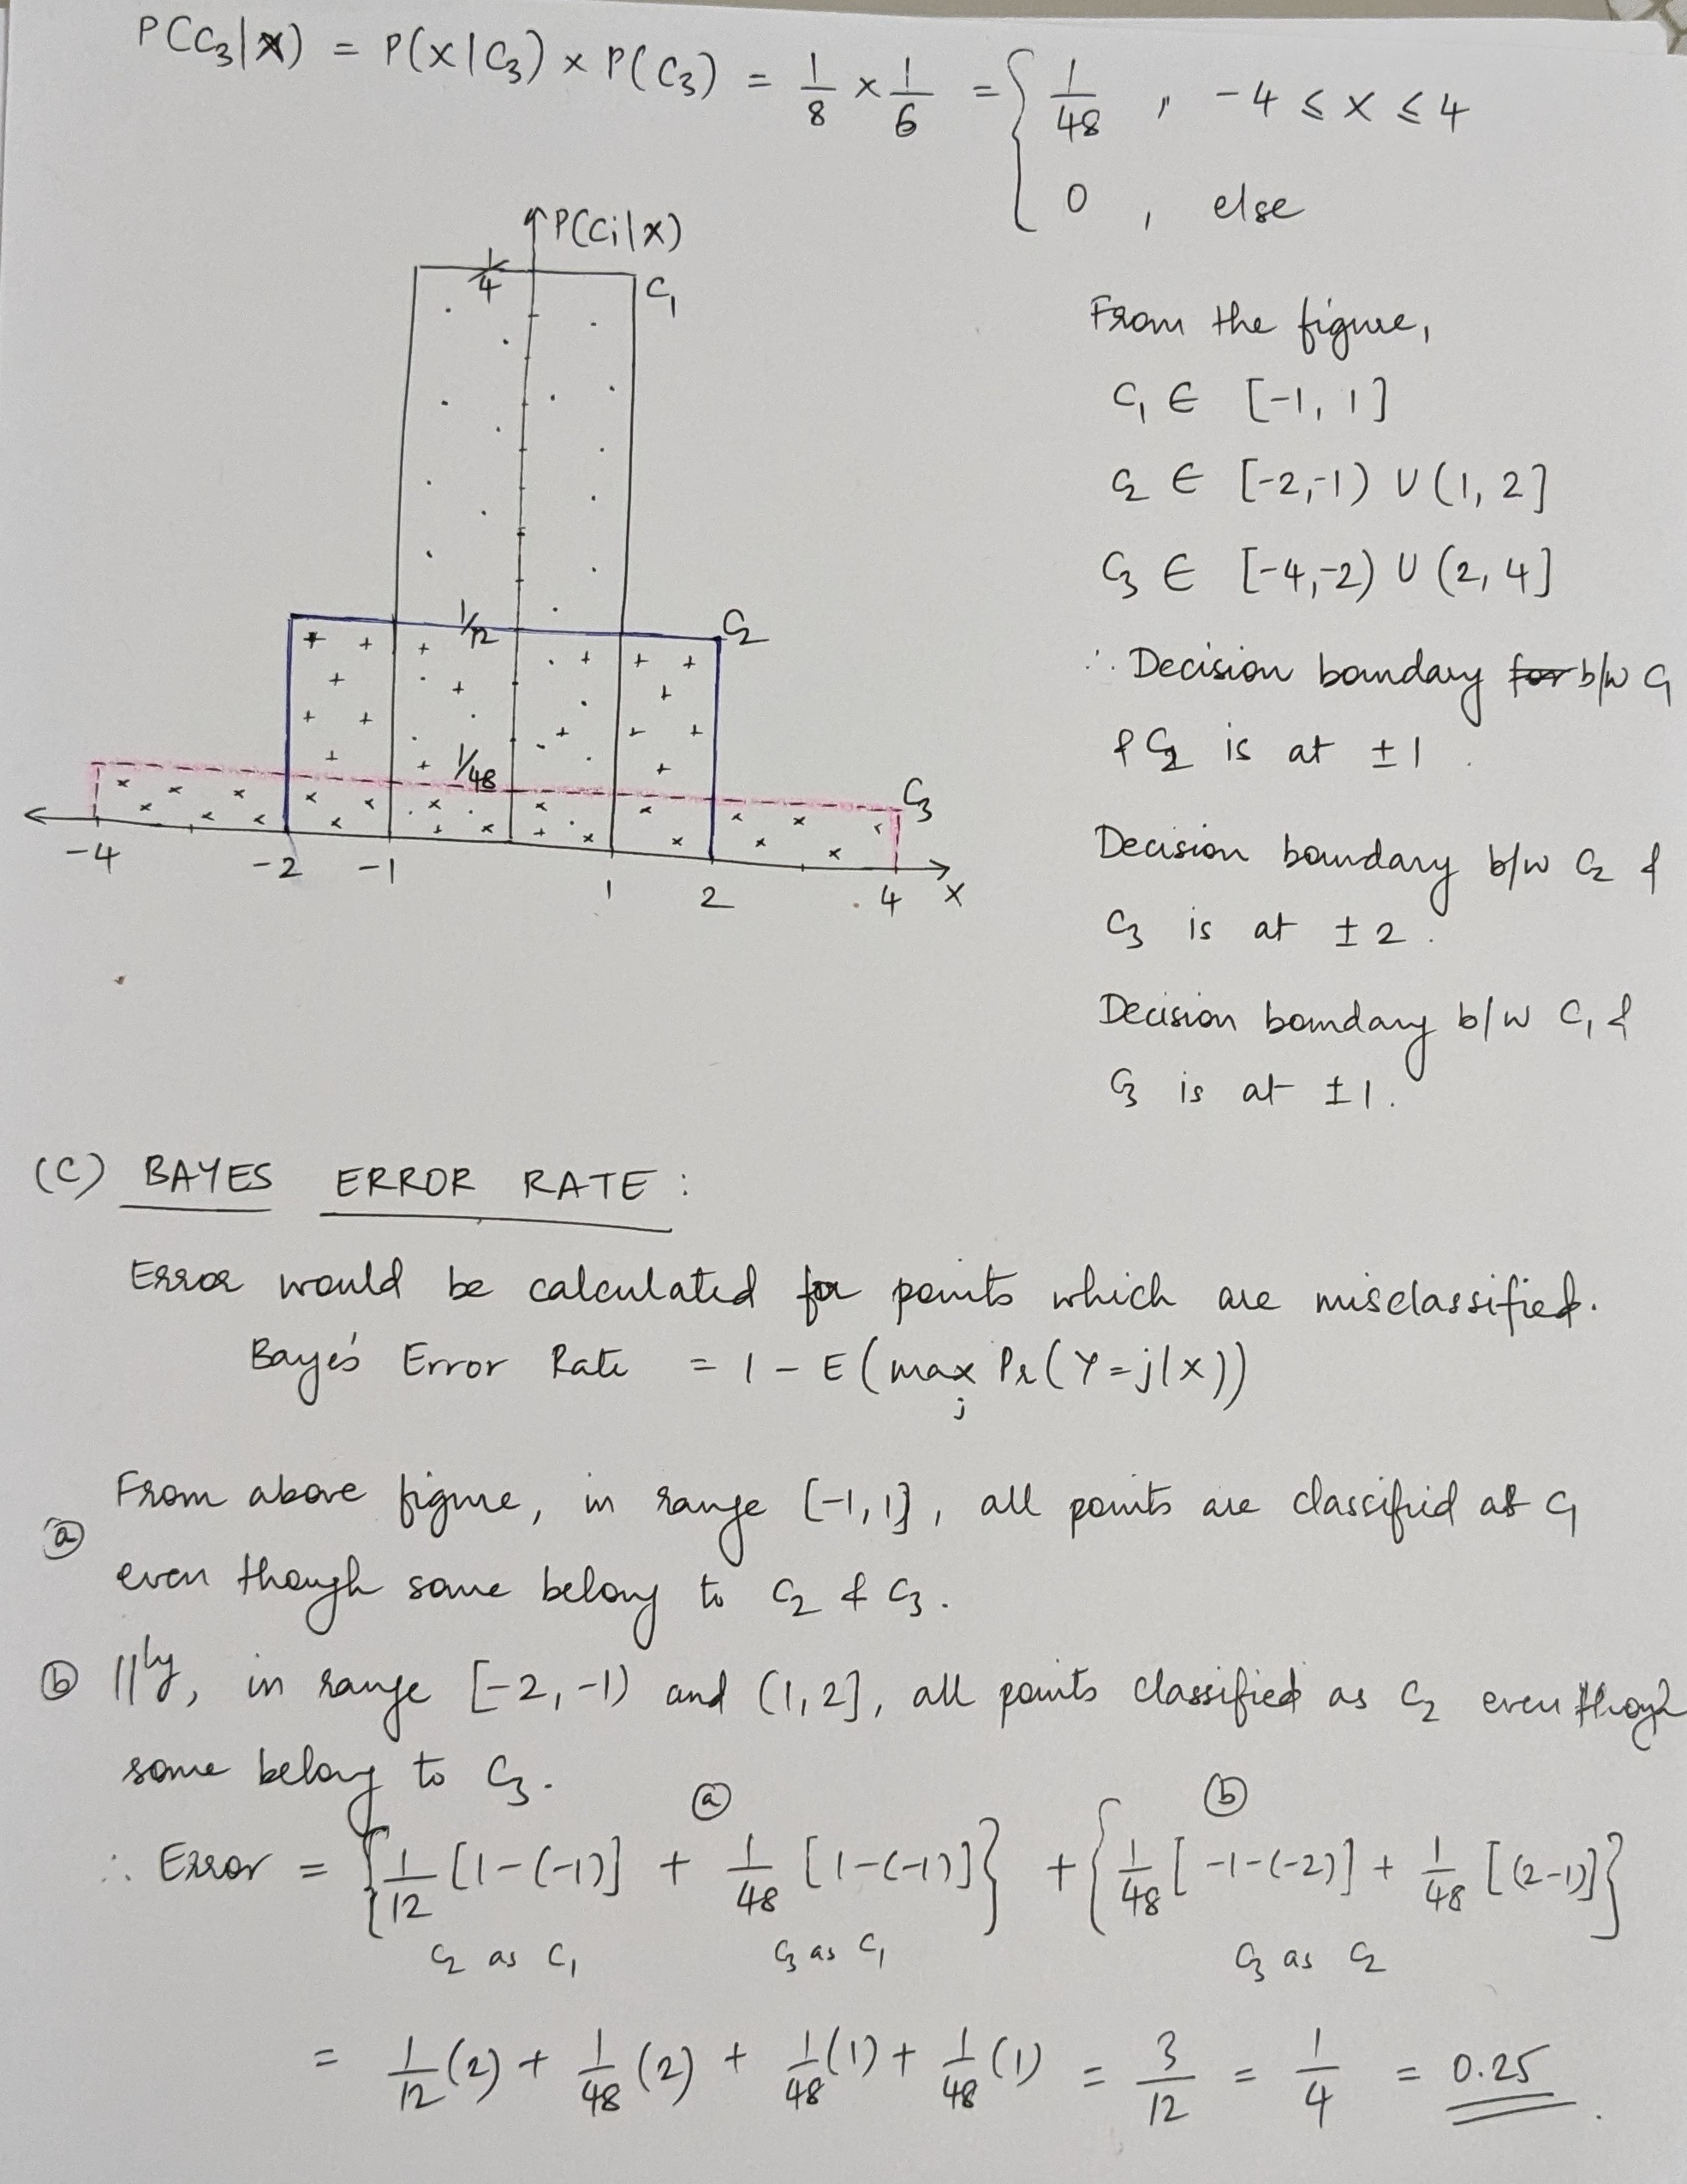 P(C₃|x) = P(x|C₃) × P(C₃) = 1/8 × 1/6 = { 1/48 , -4 ≤ x ≤ 4
0 , else
P(Ci|x)
1/4
C₁
1/12
C₂
1/48
C₃
-4 -2 -1 1 2 4 x
From the figure,
C₁ ∈ [-1, 1]
C₂ ∈ [-2,-1) ∪ (1, 2]
C₃ ∈ [-4,-2) ∪ (2, 4]
∴ Decision boundary for b/w C₁
& C₂ is at ± 1 .
Decision boundary b/w C₂ &
C₃ is at ± 2 .
Decision boundary b/w C₁ &
C₃ is at ± 1 .
(C) BAYES ERROR RATE :
Error would be calculated for points which are misclassified.
Baye's Error Rate = 1 - E(max Pr(Y=j|x))
j
From above figure, in range [-1, 1], all points are classified as C₁
ⓐ
even though some belong to C₂ & C₃.
ⓑ ||ly, in range [-2,-1) and (1,2], all points classified as C₂ even though
some belong to C₃.
ⓐ ⓑ
∴ Error = {1/12 [1-(-1)] + 1/48 [1-(-1)]} + {1/48 [-1-(-2)] + 1/48 [(2-1)]}
C₂ as C₁ C₃ as C₁ C₃ as C₂
= 1/12 (2) + 1/48 (2) + 1/48 (1) + 1/48 (1) = 3/12 = 1/4 = 0.25 .